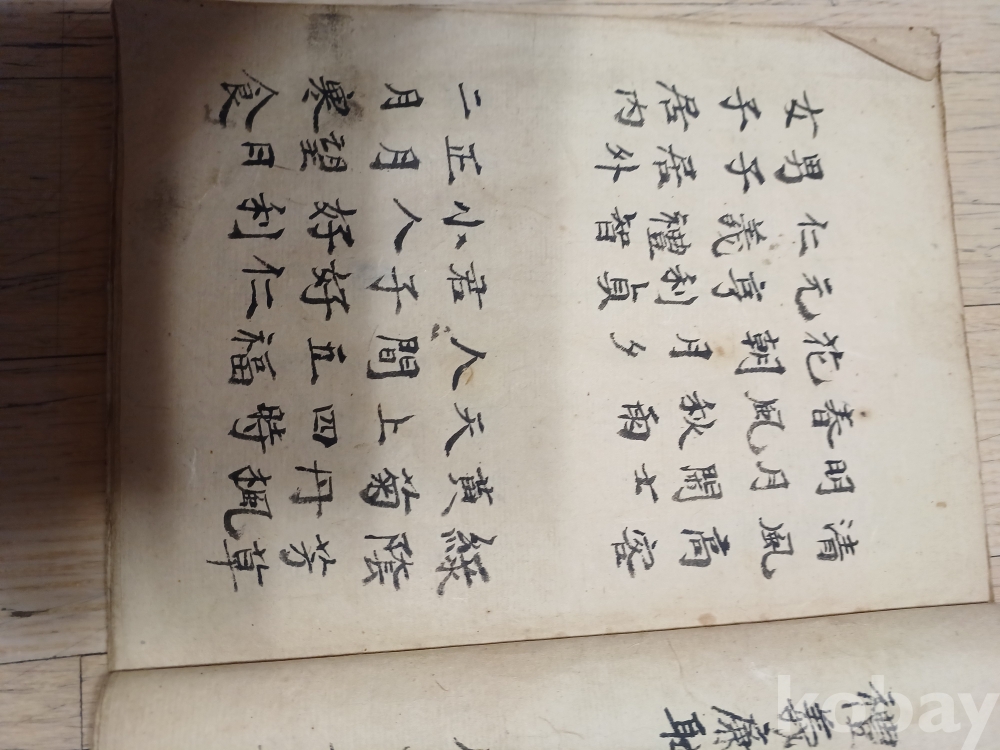 禮義廉
清風高客 綠陰芳草
明月閑士 黃菊丹楓
春風秋雨 天上四時
花朝月夕 人間五福
元亨利貞 君子好仁
仁義禮智 小人好利
男子居外 正月望日
女子居內 二月寒食
kobay